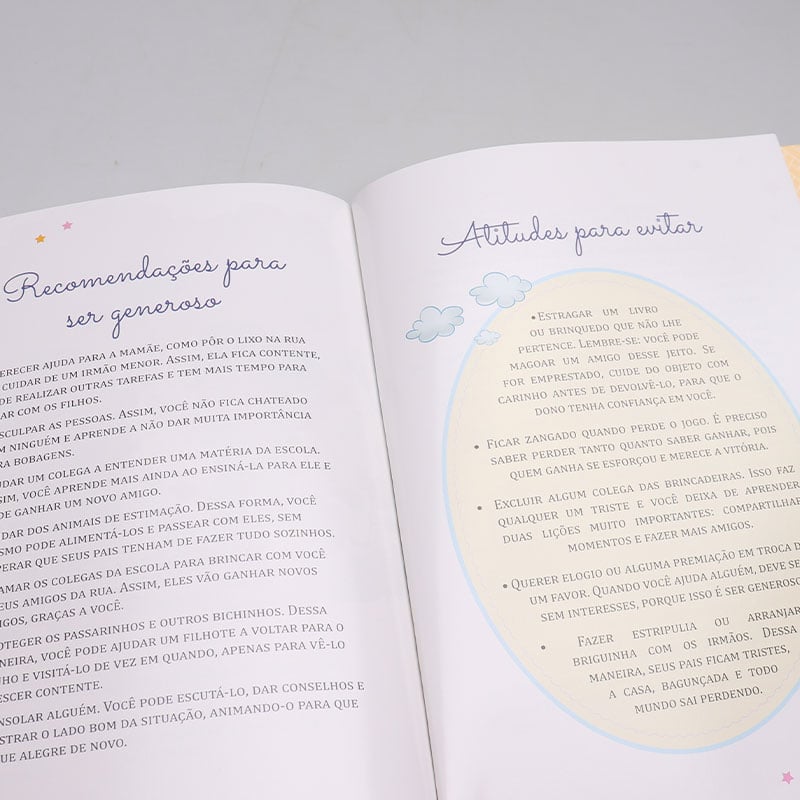 Recomendações para
ser generoso
ERECER AJUDA PARA A MAMÃE, COMO PÔR O LIXO NA RUA
CUIDAR DE UM IRMÃO MENOR. ASSIM, ELA FICA CONTENTE,
DE REALIZAR OUTRAS TAREFAS E TEM MAIS TEMPO PARA
AR COM OS FILHOS.
SCULPAR AS PESSOAS. ASSIM, VOCÊ NÃO FICA CHATEADO
M NINGUÉM E APRENDE A NÃO DAR MUITA IMPORTÂNCIA
RA BOBAGENS.
UDAR UM COLEGA A ENTENDER UMA MATÉRIA DA ESCOLA.
SIM, VOCÊ APRENDE MAIS AINDA AO ENSINÁ-LA PARA ELE E
DE GANHAR UM NOVO AMIGO.
DAR DOS ANIMAIS DE ESTIMAÇÃO. DESSA FORMA, VOCÊ
SMO PODE ALIMENTÁ-LOS E PASSEAR COM ELES, SEM
PERAR QUE SEUS PAIS TENHAM DE FAZER TUDO SOZINHOS.
AMAR OS COLEGAS DA ESCOLA PARA BRINCAR COM VOCÊ
EUS AMIGOS DA RUA. ASSIM, ELES VÃO GANHAR NOVOS
IGOS, GRAÇAS A VOCÊ.
OTEGER OS PASSARINHOS E OUTROS BICHINHOS. DESSA
NEIRA, VOCÊ PODE AJUDAR UM FILHOTE A VOLTAR PARA O
NHO E VISITÁ-LO DE VEZ EM QUANDO, APENAS PARA VÊ-LO
ESCER CONTENTE.
NSOLAR ALGUÉM. VOCÊ PODE ESCUTÁ-LO, DAR CONSELHOS E
STRAR O LADO BOM DA SITUAÇÃO, ANIMANDO-O PARA QUE
UE ALEGRE DE NOVO.
Atitudes para evitar
• ESTRAGAR UM LIVRO
OU BRINQUEDO QUE NÃO LHE
PERTENCE. LEMBRE-SE: VOCÊ PODE
MAGOAR UM AMIGO DESSE JEITO. SE
FOR EMPRESTADO, CUIDE DO OBJETO COM
CARINHO ANTES DE DEVOLVÊ-LO, PARA QUE O
DONO TENHA CONFIANÇA EM VOCÊ.
• FICAR ZANGADO QUANDO PERDE O JOGO. É PRECISO
SABER PERDER TANTO QUANTO SABER GANHAR, POIS
QUEM GANHA SE ESFORÇOU E MERECE A VITÓRIA.
• EXCLUIR ALGUM COLEGA DAS BRINCADEIRAS. ISSO FAZ
QUALQUER UM TRISTE E VOCÊ DEIXA DE APRENDER
DUAS LIÇÕES MUITO IMPORTANTES: COMPARTILHAR
MOMENTOS E FAZER MAIS AMIGOS.
• QUERER ELOGIO OU ALGUMA PREMIAÇÃO EM TROCA D
UM FAVOR. QUANDO VOCÊ AJUDA ALGUÉM, DEVE SE
SEM INTERESSES, PORQUE ISSO É SER GENEROSO
• FAZER ESTRIPULIA OU ARRANJAR
BRIGUINHA COM OS IRMÃOS. DESSA
MANEIRA, SEUS PAIS FICAM TRISTES,
A CASA, BAGUNÇADA E TODO
MUNDO SAI PERDENDO.